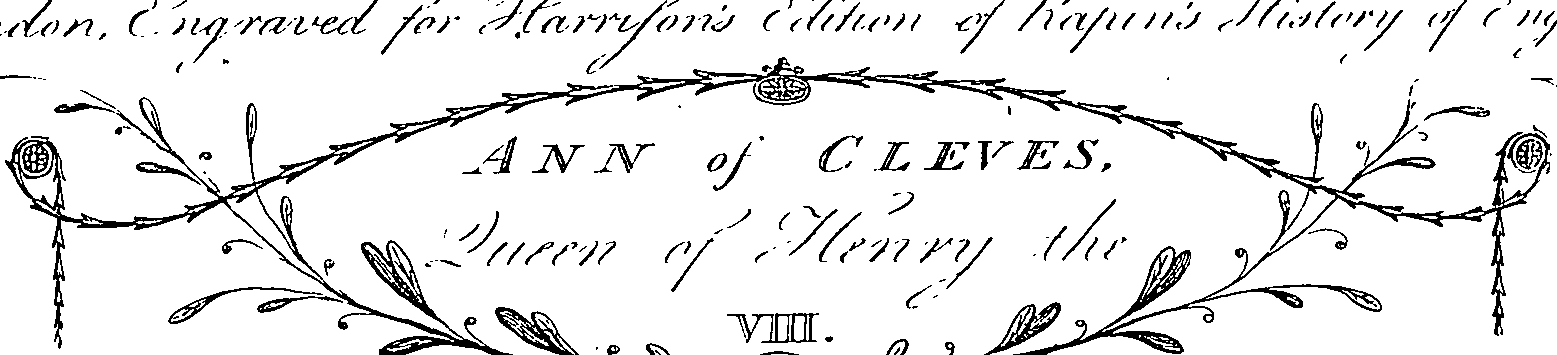 don, Engraved for Harrison's Edition of Rapin's History of Eng
ANN of CLEVES,
Queen of Henry the
VIII.